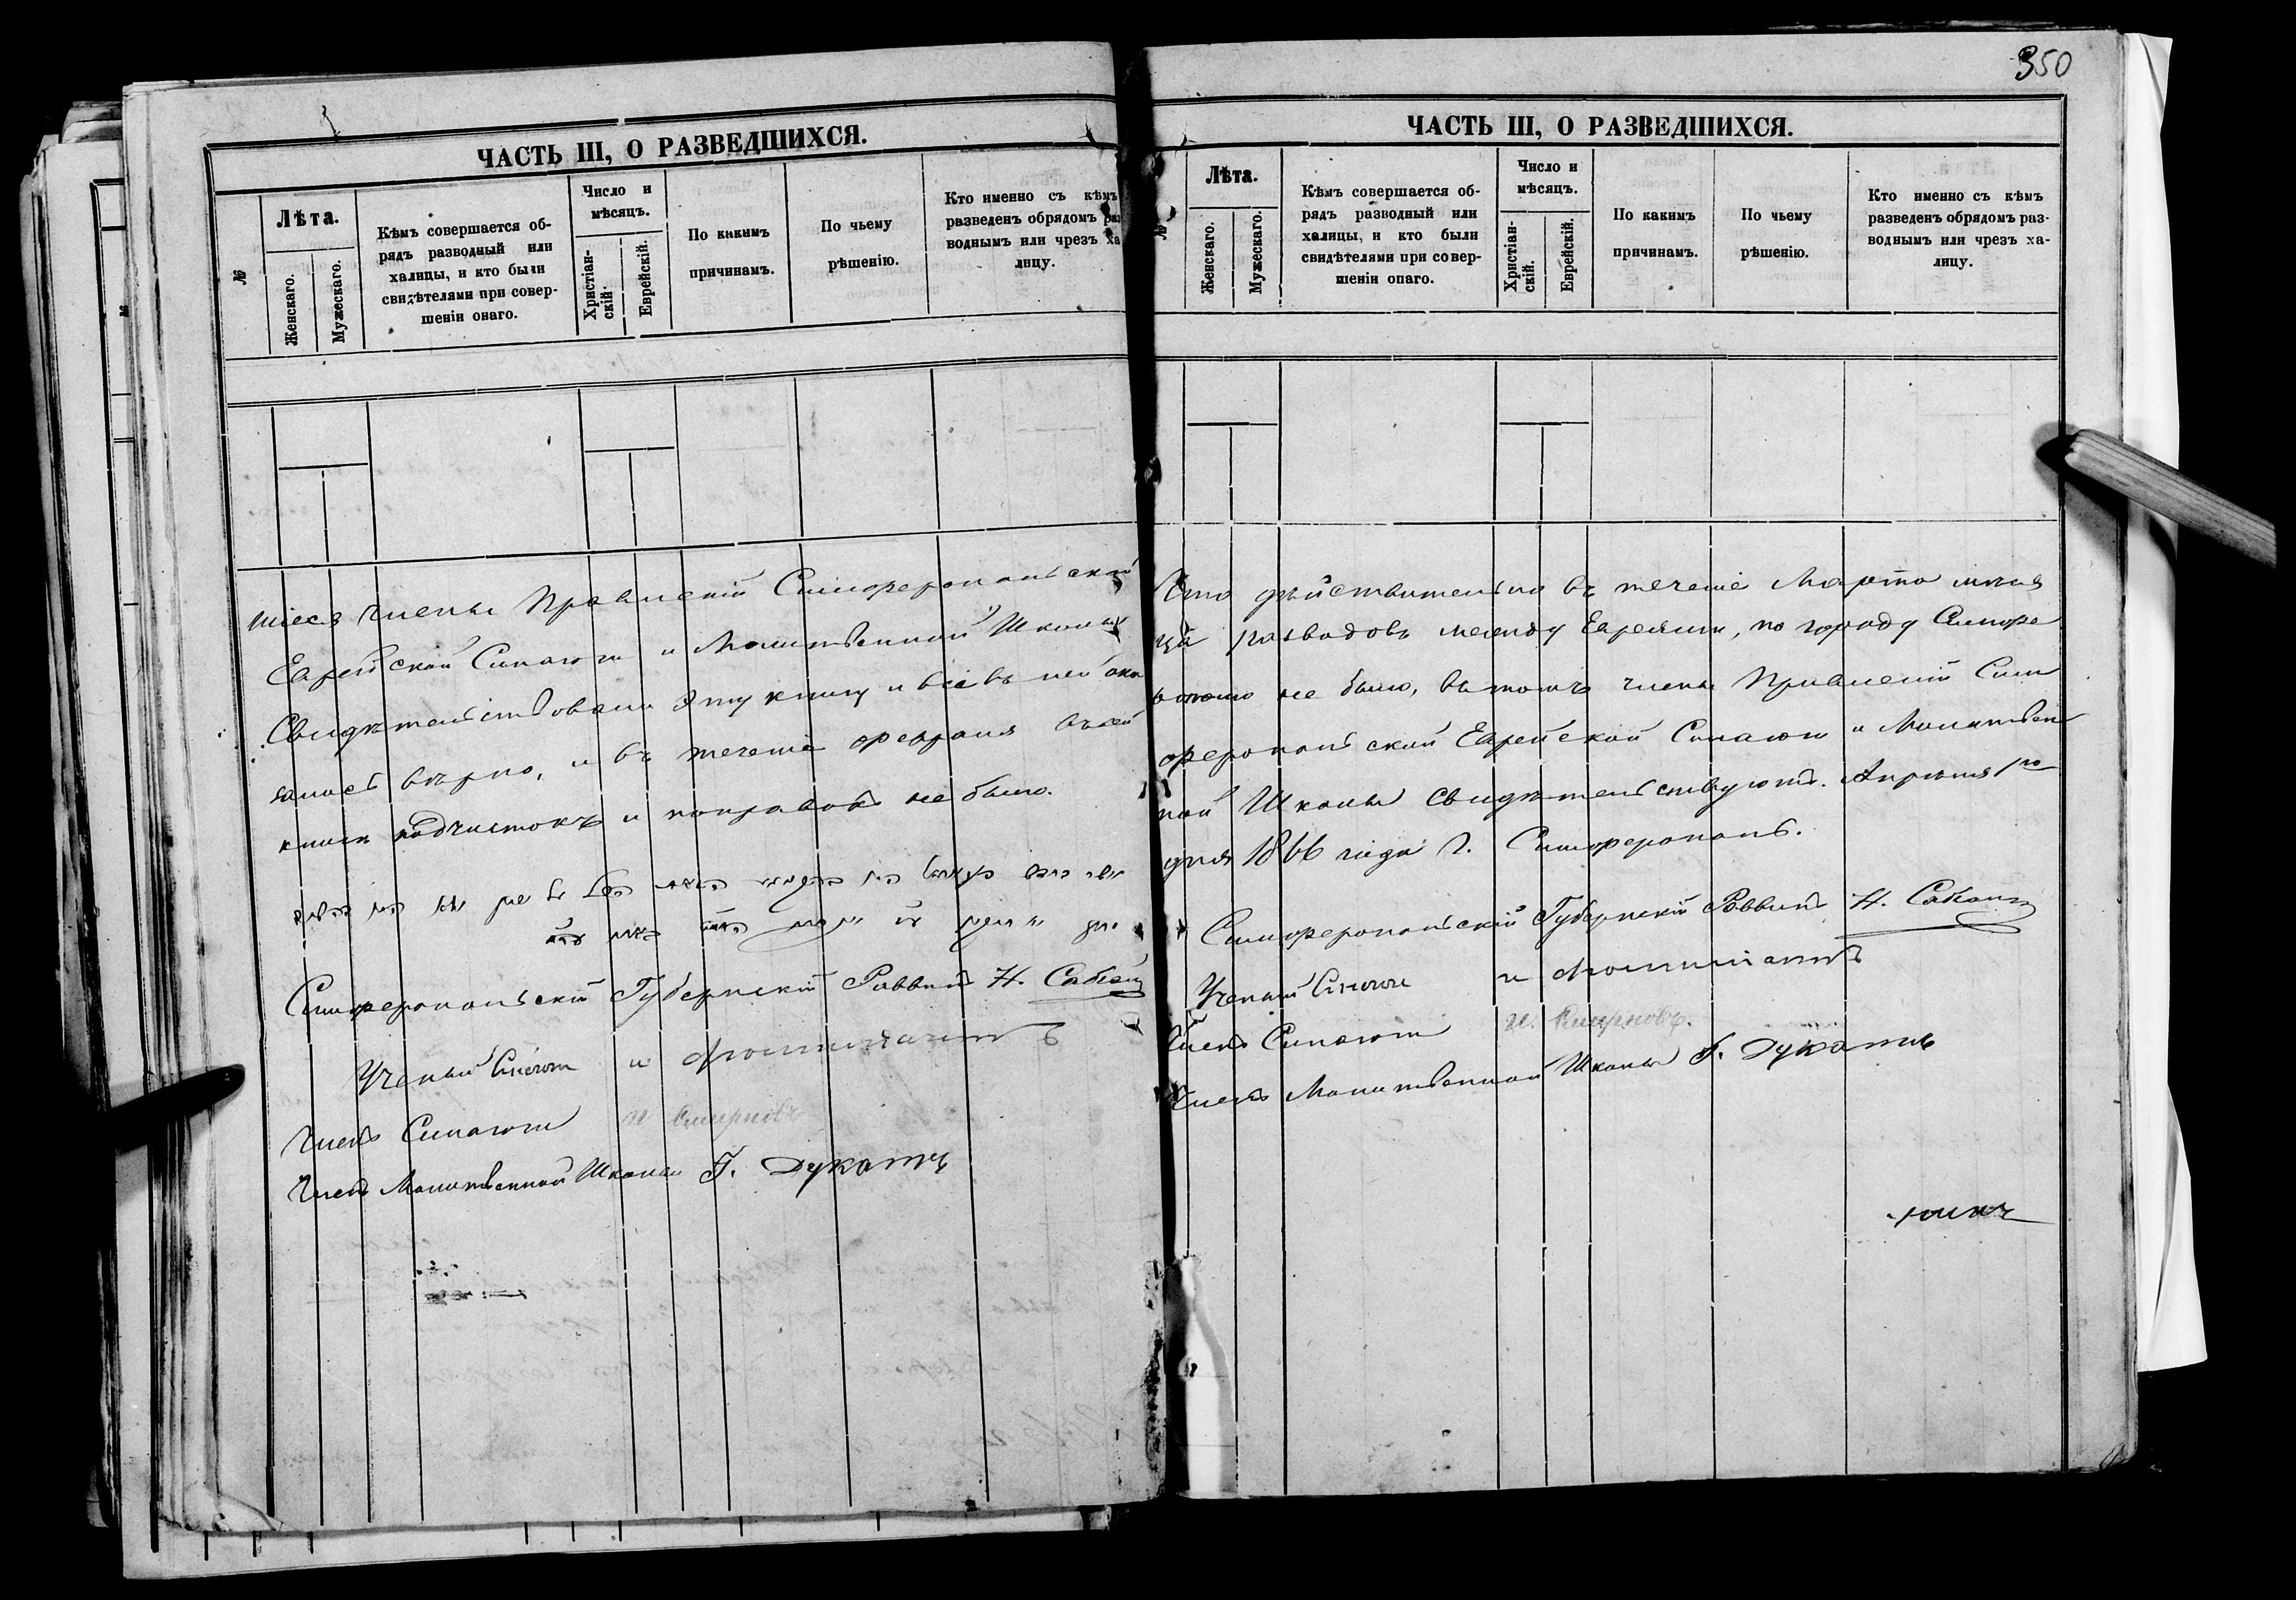 350
ЧАСТЬ III, О РАЗВЕДШИХСЯ.
№
Лѣта.
Женскаго.
Мужескаго.
Кѣмъ совершается об-
рядъ разводный или
халицы, и кто были
свидѣтелями при совер-
шеніи онаго.
Число и
мѣсяцъ.
Христіан-
скій.
Еврейскій.
По какимъ
причинамъ.
По чьему
рѣшенію.
Кто именно съ кѣмъ
разведенъ обрядомъ раз
воднымъ или чрезъ ха
лицу.
шіеся члены Правленій Симферопольской
Еврейской Синагоги и Молитвенной Школы
Свидѣтельствовали эту книгу и все въ ней ока
залось вѣрно, и въ теченіе февраля въ сей
книги подчистокъ и поправокъ не было.
Симферопольскій Губернскій Раввинъ Н.
Ученый
Членъ Синагоги И Смирновъ
Членъ Молитвенной Школы Г. Дукатъ
ЧАСТЬ III, О РАЗВЕДШИХСЯ.
№
Лѣта.
Женскаго.
Мужескаго.
Кѣмъ совершается об-
рядъ разводный или
халицы, и кто были
свидѣтелями при совер-
шеніи онаго.
Число и
мѣсяцъ.
Христіан-
скій.
Еврейскій.
По какимъ
причинамъ.
По чьему
рѣшенію.
Кто именно съ кѣмъ
разведенъ обрядомъ раз-
воднымъ или чрезъ ха-
лицу.
Что дѣйствительно въ теченіе Марта мѣся
ца разводовъ между Евреями, по городу Симфе
не было, въ томъ члены Правленій Сим
феропольской Еврейской Синагоги и Молитвен
ной Школы Свидѣтельствуютъ. Апрѣля 1го
дня 1866 года Г. Симферополь.
Симферопольскій Губернскій Раввинъ Н.
Ученый
Членъ Синагоги И. Смирновъ.
Членъ Молитвенной Школы Г. Дукатъ